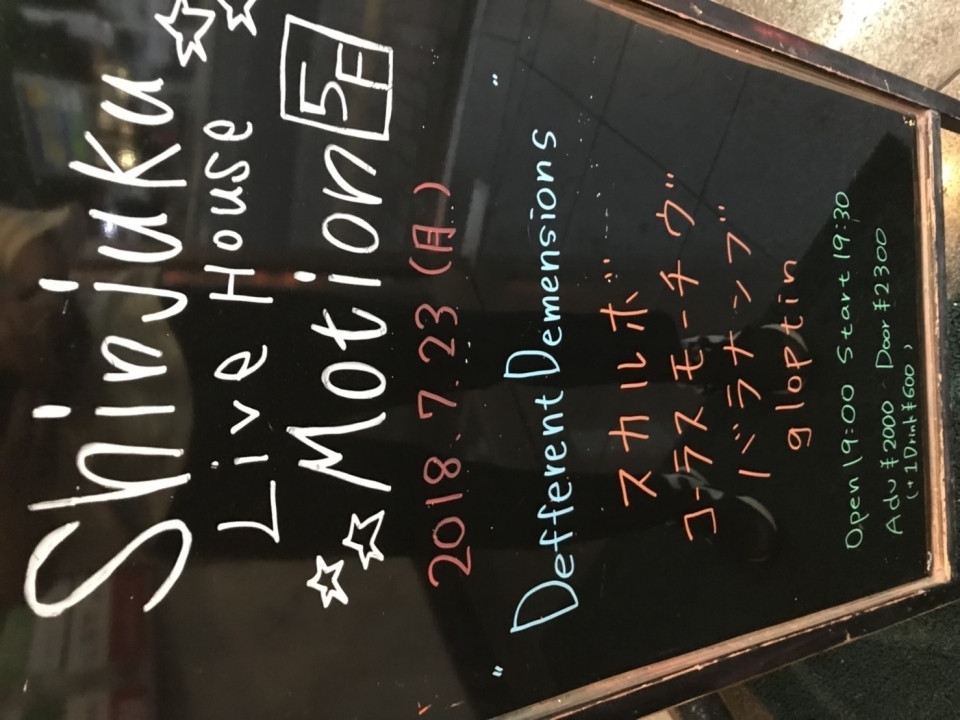 Shinjuku
Live House
Motion 5F
2018.7.23(月)
"Defferent Demensions"
スカルボ
コーラスモーチヴ
バラナンブ
gloptin
Open 19:00 Start 19:30
Adv ¥2000 Door ¥2300
(+1Drink ¥600)